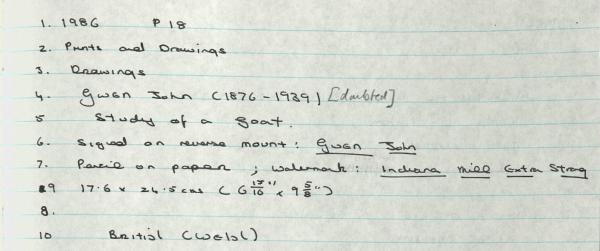 1. 1986 P 18
2. Prints and Drawings
3. Drawings
4. Gwen John (1876-1939) [doubted]
5 Study of a goat.
6. Signed on reverse mount: Gwen John
7. Pencil on paper ; watermark: Indiana Mill Extra Strong
9 17.6 x 24.5 cms (6 15/16" x 9 5/8")
8.
10 British (Welsh)